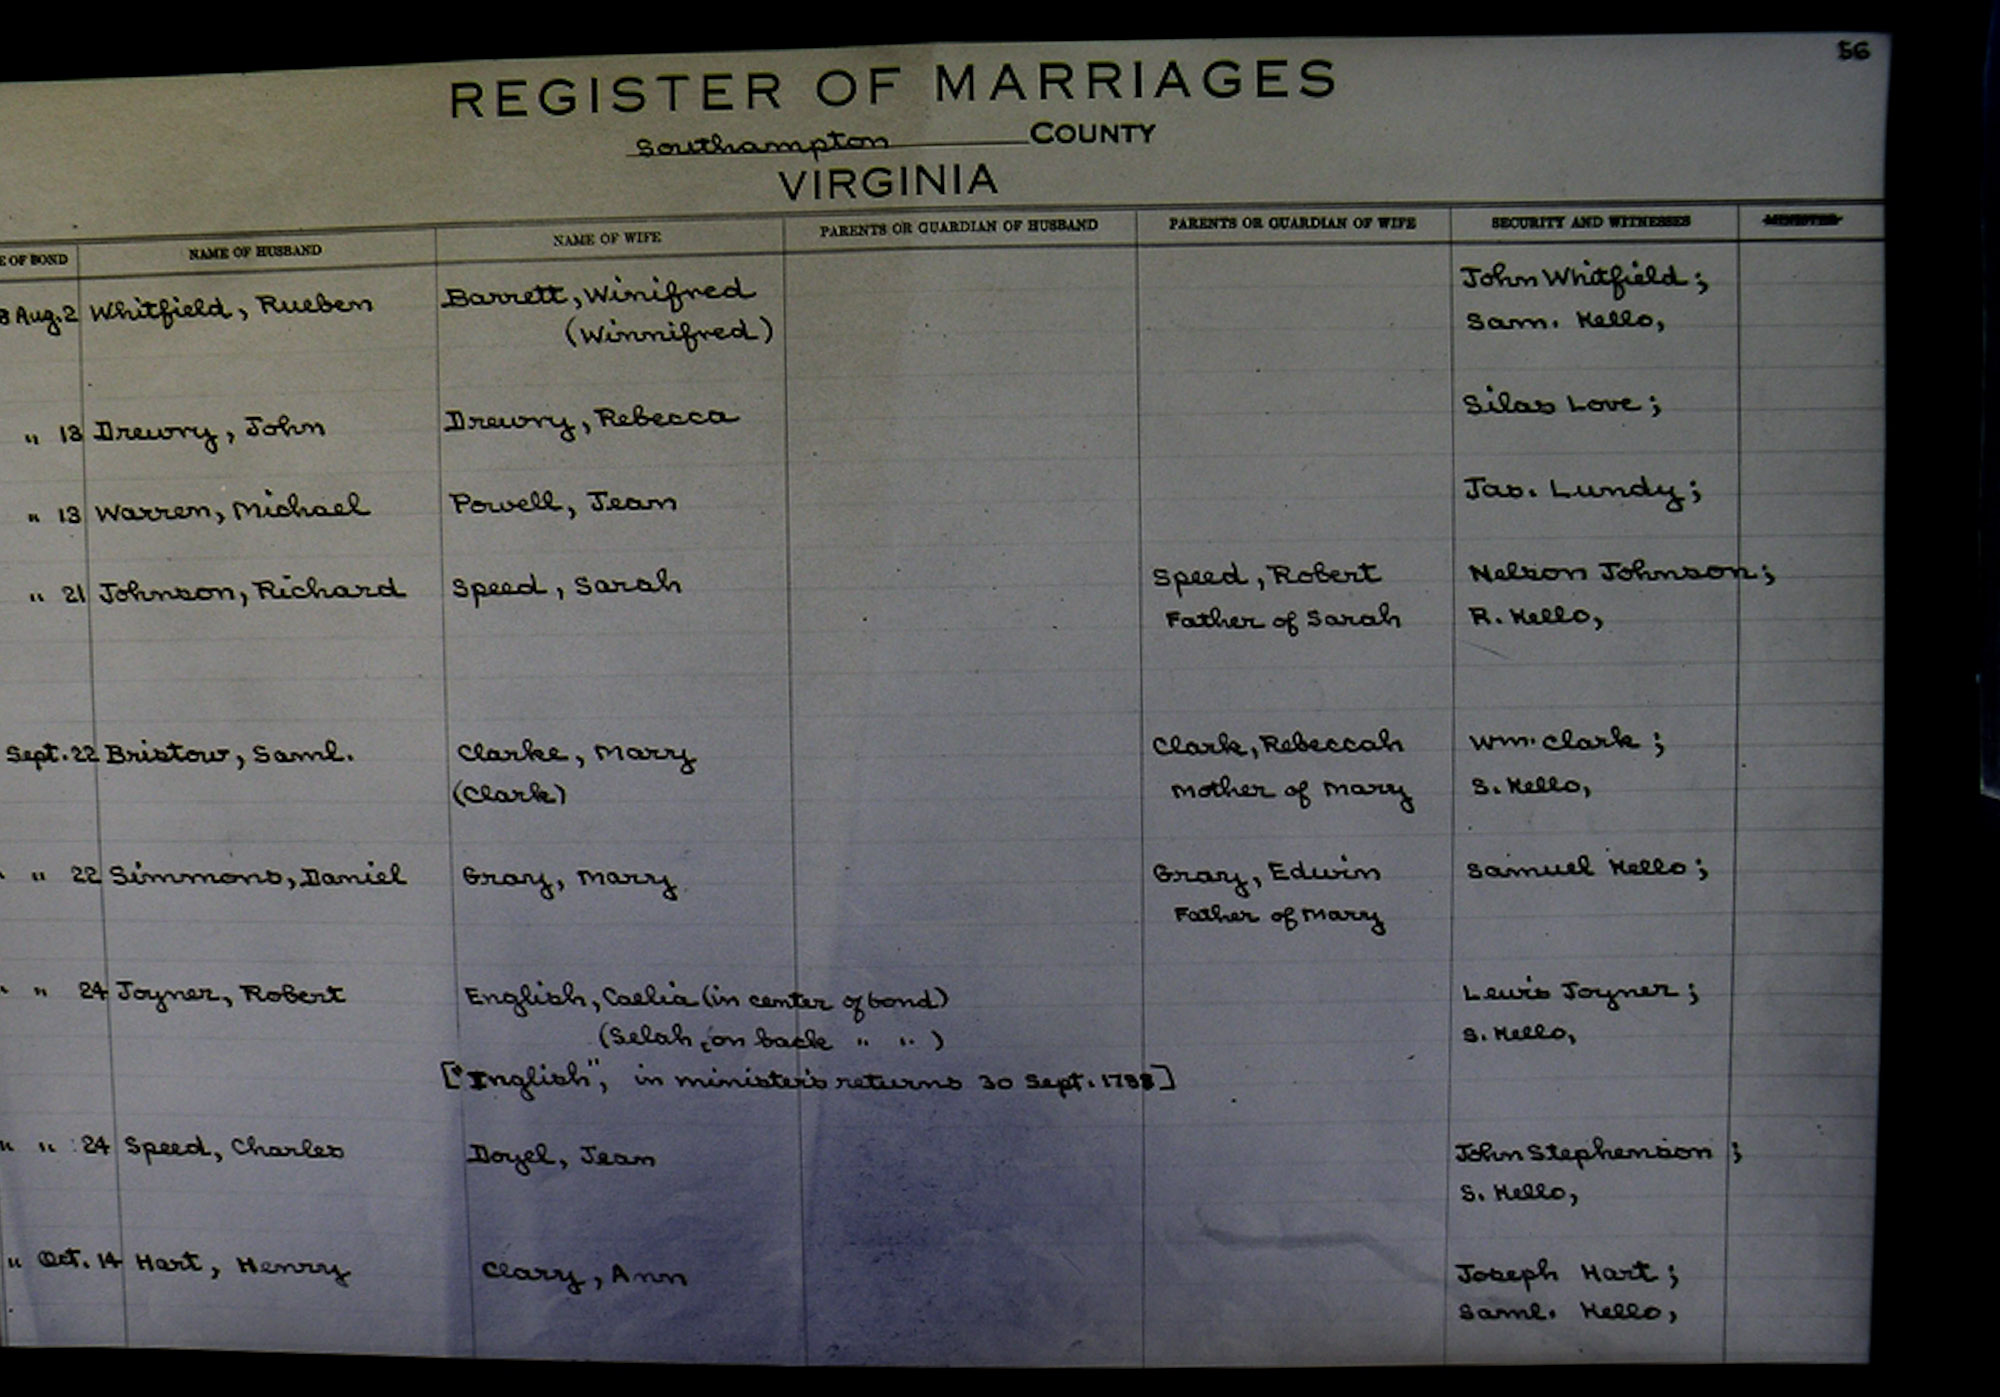 56
REGISTER OF MARRIAGES
Southampton COUNTY
VIRGINIA
E OF BOND NAME OF HUSBAND NAME OF WIFE PARENTS OR GUARDIAN OF HUSBAND PARENTS OR GUARDIAN OF WIFE SECURITY AND WITNESSES MINISTER
8 Aug. 2 Whitfield, Rueben Barrett, Winifred John Whitfield;
(Winnifred) Sam. Kello,
" 13 Drewry, John Drewry, Rebecca Silas Love;
" 13 Warren, Michael Powell, Jean Jas. Lundy;
" 21 Johnson, Richard Speed, Sarah Speed, Robert Nelson Johnson;
Father of Sarah R. Kello,
Sept. 22 Bristow, Saml. Clarke, Mary Clark, Rebeccah Wm. Clark;
(Clark) Mother of Mary S. Kello,
" 22 Simmons, Daniel Gray, Mary Gray, Edwin Samuel Kello;
Father of Mary
" 24 Joyner, Robert English, Caelia (in center of bond) Lewis Joyner;
(Selah, on back " " ) S. Kello,
["Inglish", in minister's returns 30 Sept. 1788]
" " 24 Speed, Charles Doyel, Jean John Stephenson;
S. Kello,
" Oct. 14 Hart, Henry Clary, Ann Joseph Hart;
Saml. Kello,